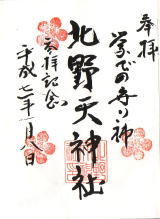 奉拝
学びの守り神
北野天神社
参拝記念
平成七年一月八日